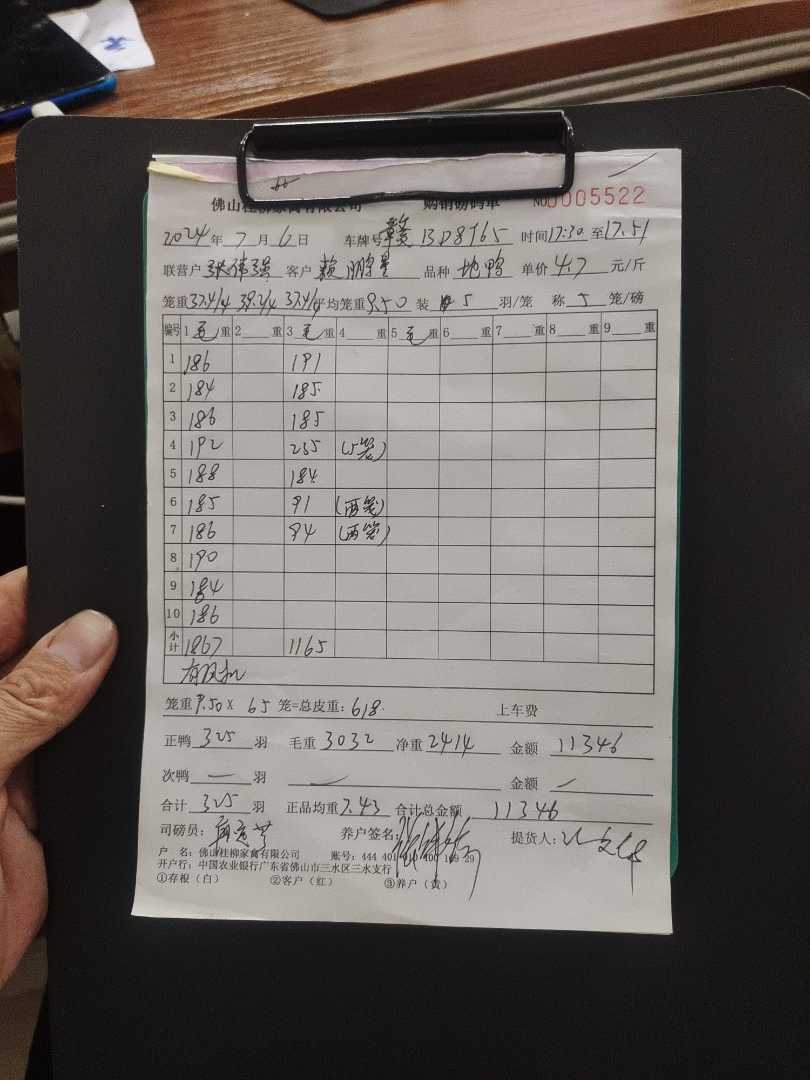 佛山桂柳家禽有限公司 购销磅码单 NO 0005522
2024年7月6日 车牌号 赣 时间17:30至17:51
联营户 张伟强 客户 赖鹏星 品种 地鸭 单价 4.7 元/斤
笼重37.4/4 39.2/4 37.4/4 平均笼重9.50 装 5 羽/笼 称 5 笼/磅
编号 1 毛 重 2 重 3 毛 重 4 重 5 毛 重 6 重 7 重 8 重 9 重
1 186 191
2 184 185
3 186 185
4 192 235 (5笼)
5 188 184
6 185 91 (两笼)
7 186 94 (两笼)
8 190
9 184
10 186
小计 1867 1165
有风机
笼重9.50 X 65 笼=总皮重：618. 上车费
正鸭 325 羽 毛重 3032 净重 2414 金额 11346
次鸭 — 羽 — 金额 —
合计 325 羽 正品均重 7.43 合计总金额 11346
司磅员： 养户签名： 提货人：
户 名：佛山桂柳家禽有限公司 账号：444 401 29
开户行：中国农业银行广东省佛山市三水区三水支行
①存根（白） ②客户（红） ③养户（黄）